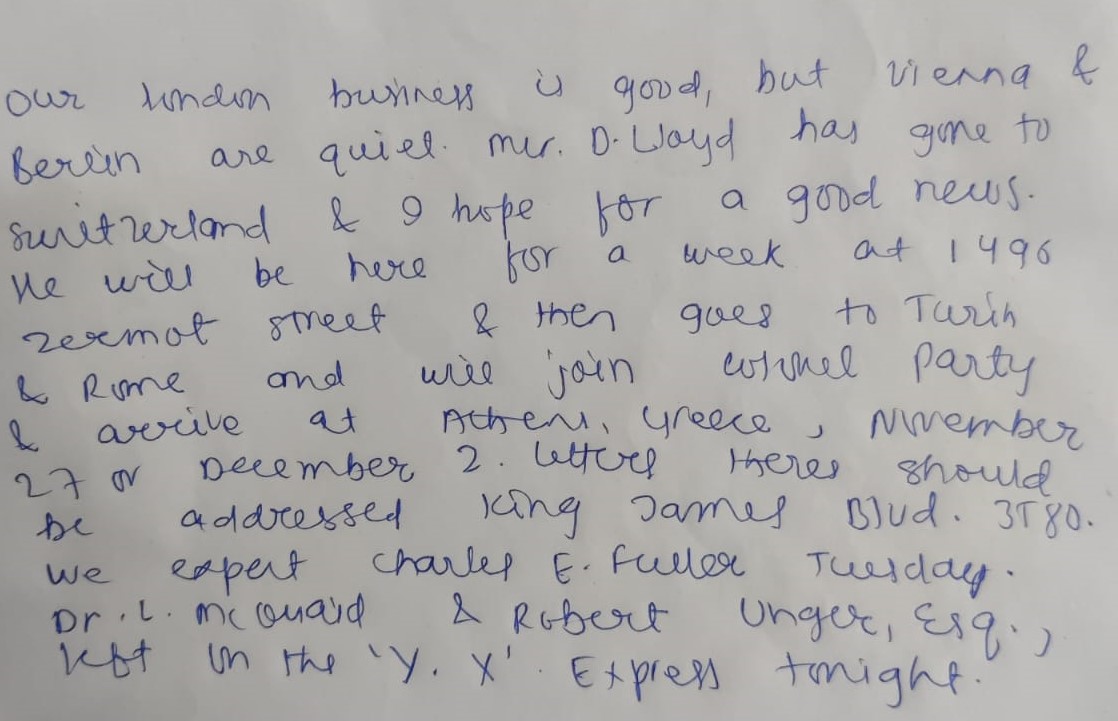 Our London business is good, but Vienna &
Berlin are quiet. Mr. D. Lloyd has gone to
Switzerland & I hope for a good news.
He will be here for a week at 1496
Zermot street & then goes to Turin
& Rome and will join Colonel Party
& arrive at Athens, Greece, November
27 or December 2. Letters theres should
be addressed King James Blvd. 3T80.
We expect Charles E. Fuller Tuesday.
Dr. L. McQuaid & Robert Unger, Esq.,
left on the 'Y. X' Express tonight.